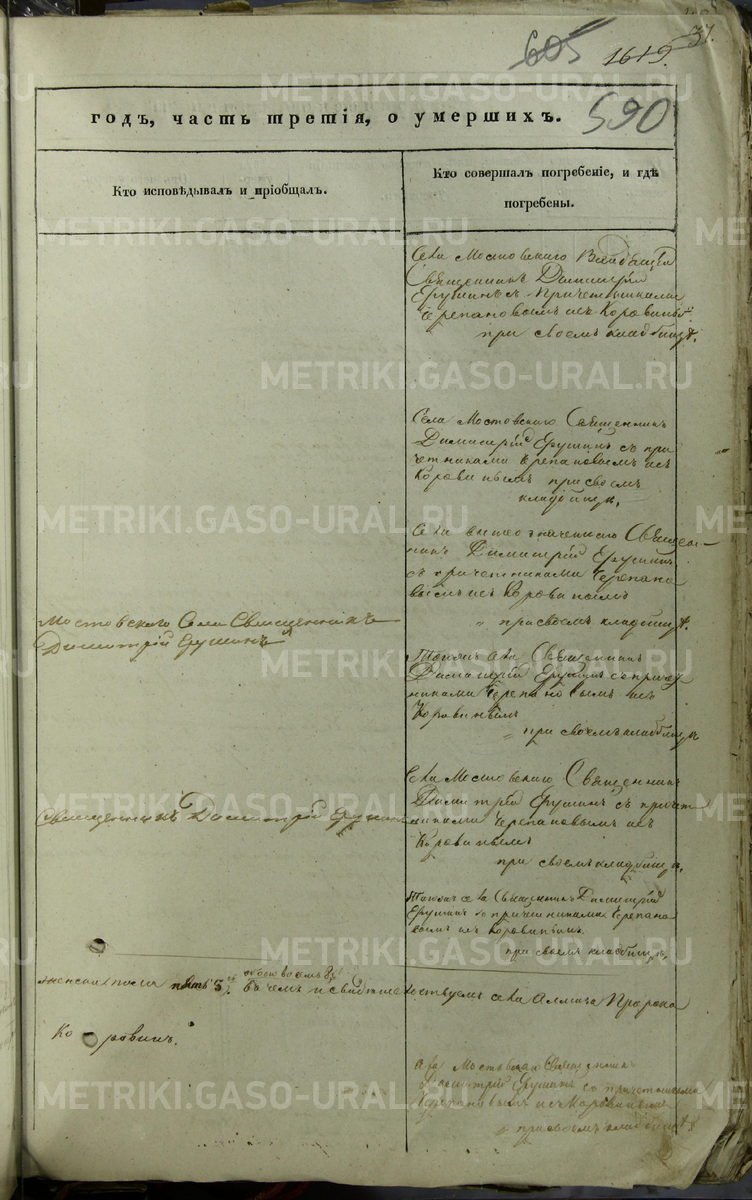 605 1619. 31.
590
годъ, часть третія, о умершихъ.
Кто исповѣдывалъ и пріобщалъ.
Кто совершалъ погребеніе, и гдѣ
погребены.
Села Мостовскаго
Священникъ Димитрій
Ерушинъ съ Причетниками
Черепановымъ и Коровинымъ
при своемъ кладбищѣ.
Села Мостовскаго Священникъ
Димитрій Ерушинъ съ при
четниками Черепановымъ и
Коровинымъ при своемъ
кладбищѣ.
Села вышеозначеннаго Священ-
никъ Димитрій Ерушинъ
съ причетниками Черепано
вымъ и Коровинымъ
при своемъ кладбищѣ.
Мостовскаго Села Священникъ
Димитрій Ерушинъ
Тогожъ Села Священникъ
Димитрій Ерушинъ съ причет
никами Черепановымъ и
Коровинымъ
при своемъ кладбищѣ
Села Мостовскаго Священникъ
Димитрій Ерушинъ съ причет
никами Черепановымъ и
Коровинымъ
при своемъ кладбищѣ.
Священникъ Димитрій Ерушинъ
Тогожъ села Священникъ Димитрій
Ерушинъ со причетниками Черепано
вымъ и Коровинымъ
при своемъ кладбищѣ.
женска пола пять 5, въ чемъ и свидѣтельствуемъ села Пророка
Коровинъ.
Священникъ
Димитрій Ерушинъ со причетниками
Черепановымъ и Коровинымъ
при своемъ кладбищѣ
METRIKI.GASO-URAL.RU